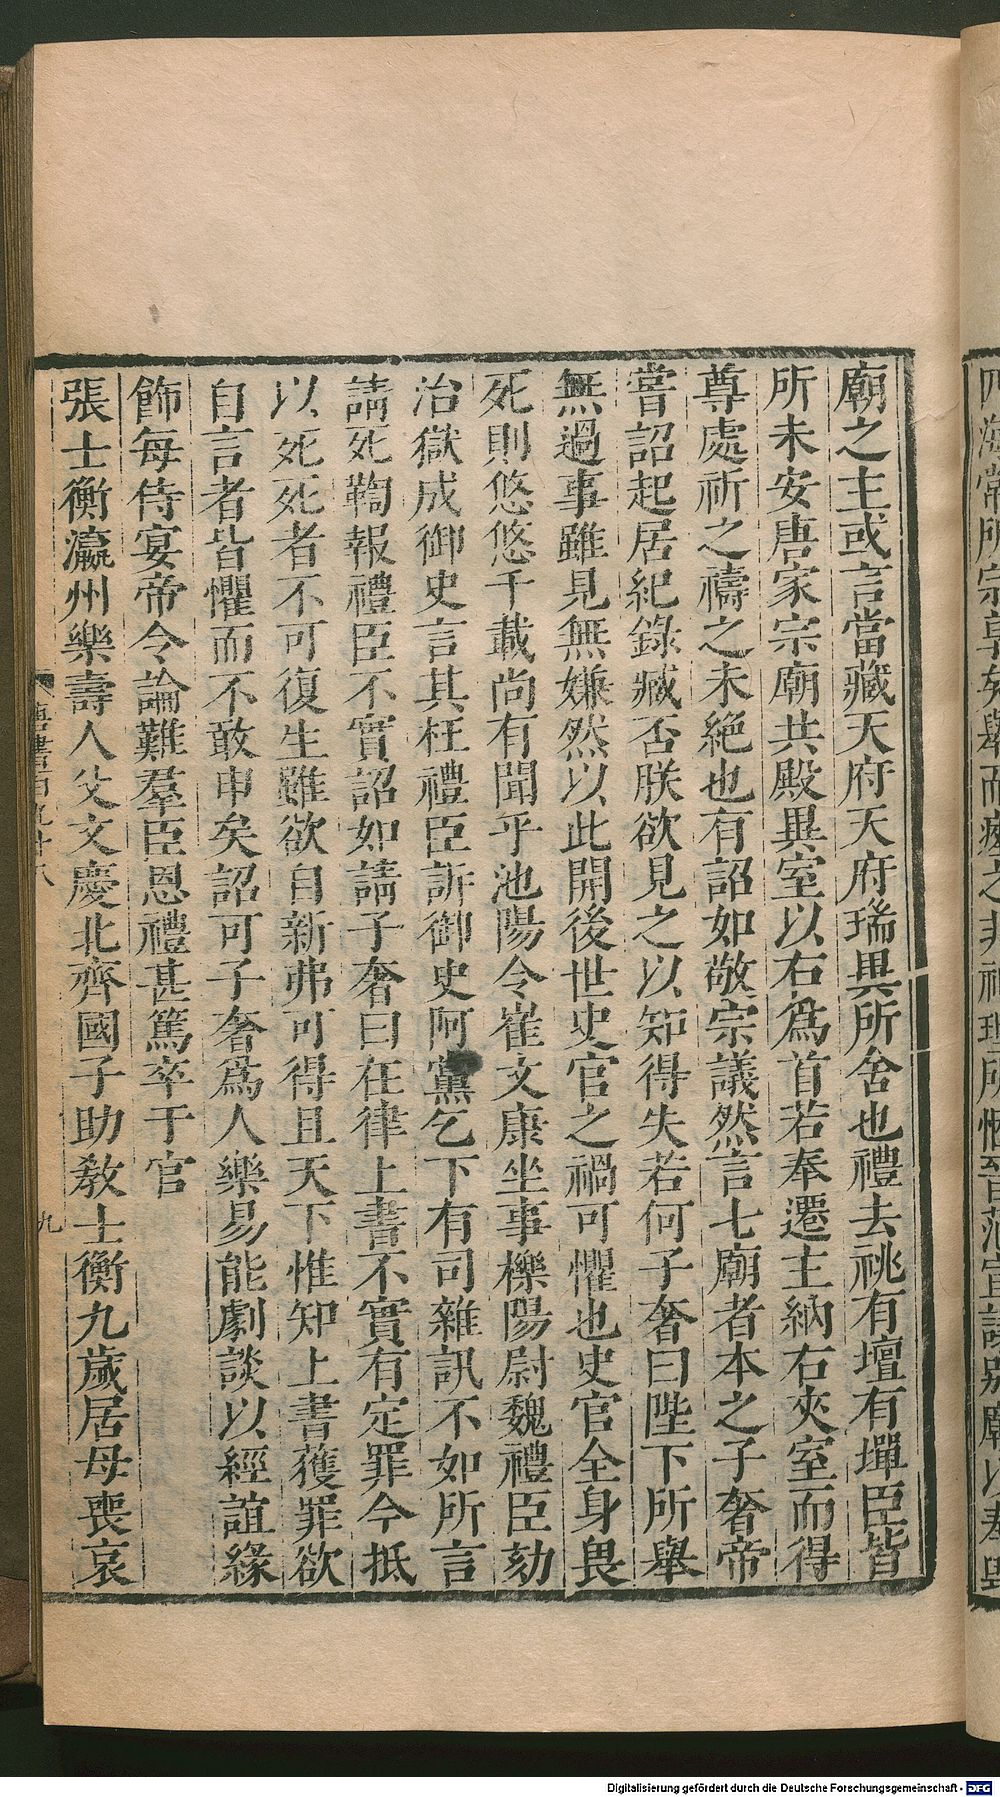 廟之主或言當藏天府天府瑞異所舍也禮去祧有壇有墠臣皆
所未安唐家宗廟共殿異室以右爲首若奉遷主納右夾室而得
尊處祈之禱之未絶也有詔如敬宗議然言七廟者本之子奢帝
嘗詔起居紀錄臧否朕欲見之以知得失若何子奢曰陛下所舉
無過事雖見無嫌然以此開後世史官之禍可懼也史官全身畏
死則悠悠千載尚有聞乎池陽令崔文康坐事櫟陽尉魏禮臣劾
治獄成御史言其枉禮臣訴御史阿黨乞下有司雜訊不如所言
請死鞫報禮臣不實詔如請子奢曰在律上書不實有定罪今抵
以死死者不可復生雖欲自新弗可得且天下惟知上書獲罪欲
自言者皆懼而不敢申矣詔可子奢爲人樂易能劇談以經誼緣
飾每侍宴帝令論難羣臣恩禮甚篤卒于官
張士衡瀛州樂壽人父文慶北齊國子助敎士衡九歲居母喪哀
九
Digitalisierung gefördert durch die Deutsche Forschungsgemeinschaft - DFG